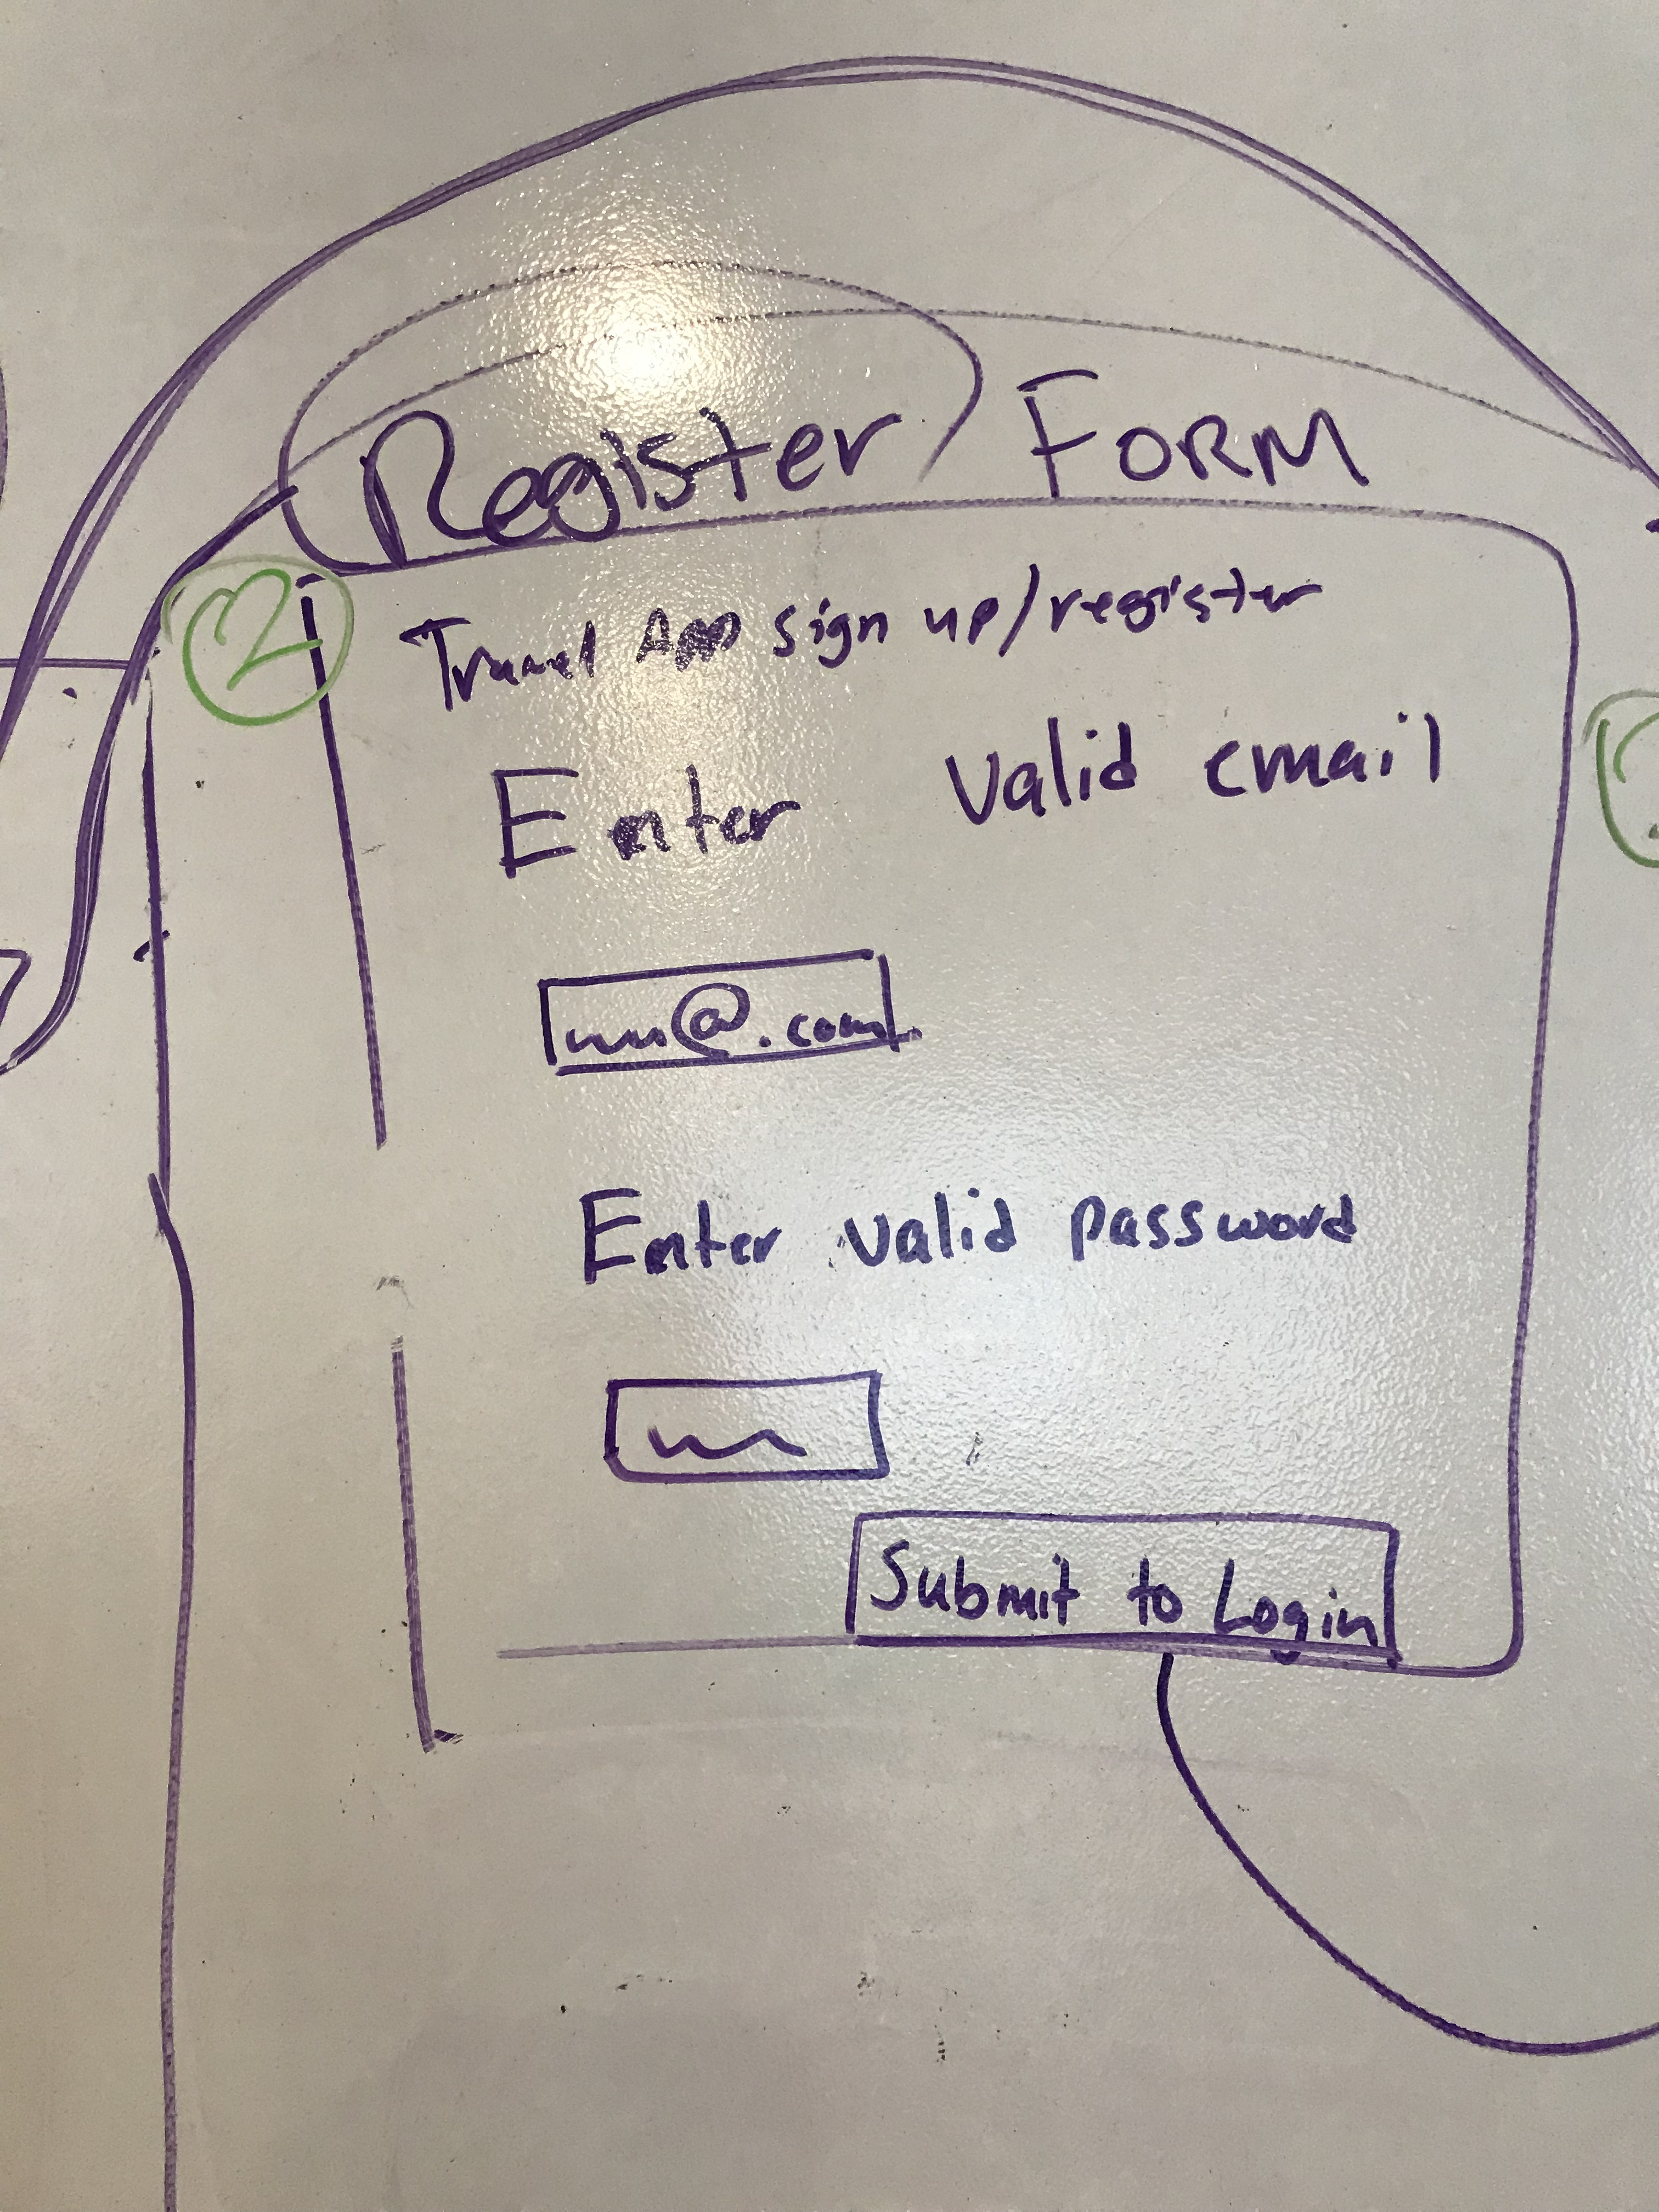 Register FORM
2
Travel App sign up/register
Enter valid email
@.com
Enter valid password
Submit to Login